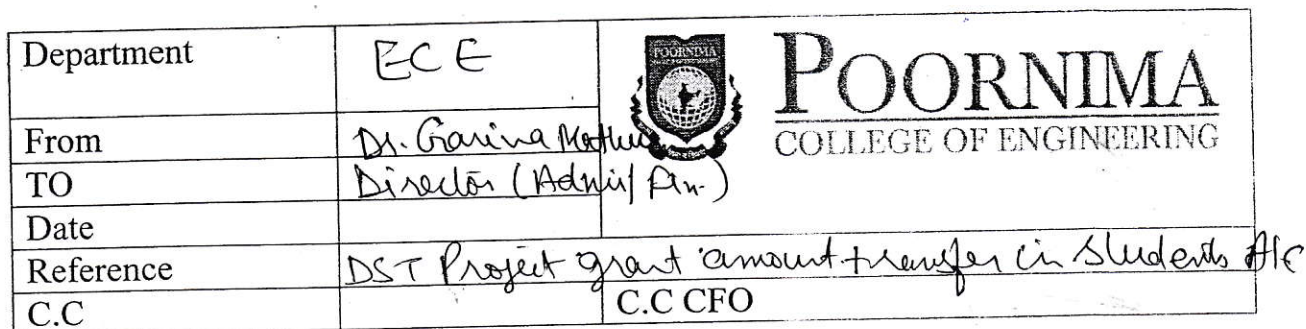 Department ECE
POORNIMA
POORNIMA
COLLEGE OF ENGINEERING
From Dr. Garima Mathur
TO Director (Admin/ Fin.)
Date
Reference DST Project grant amount transfer in Students A/c
C.C C.C CFO